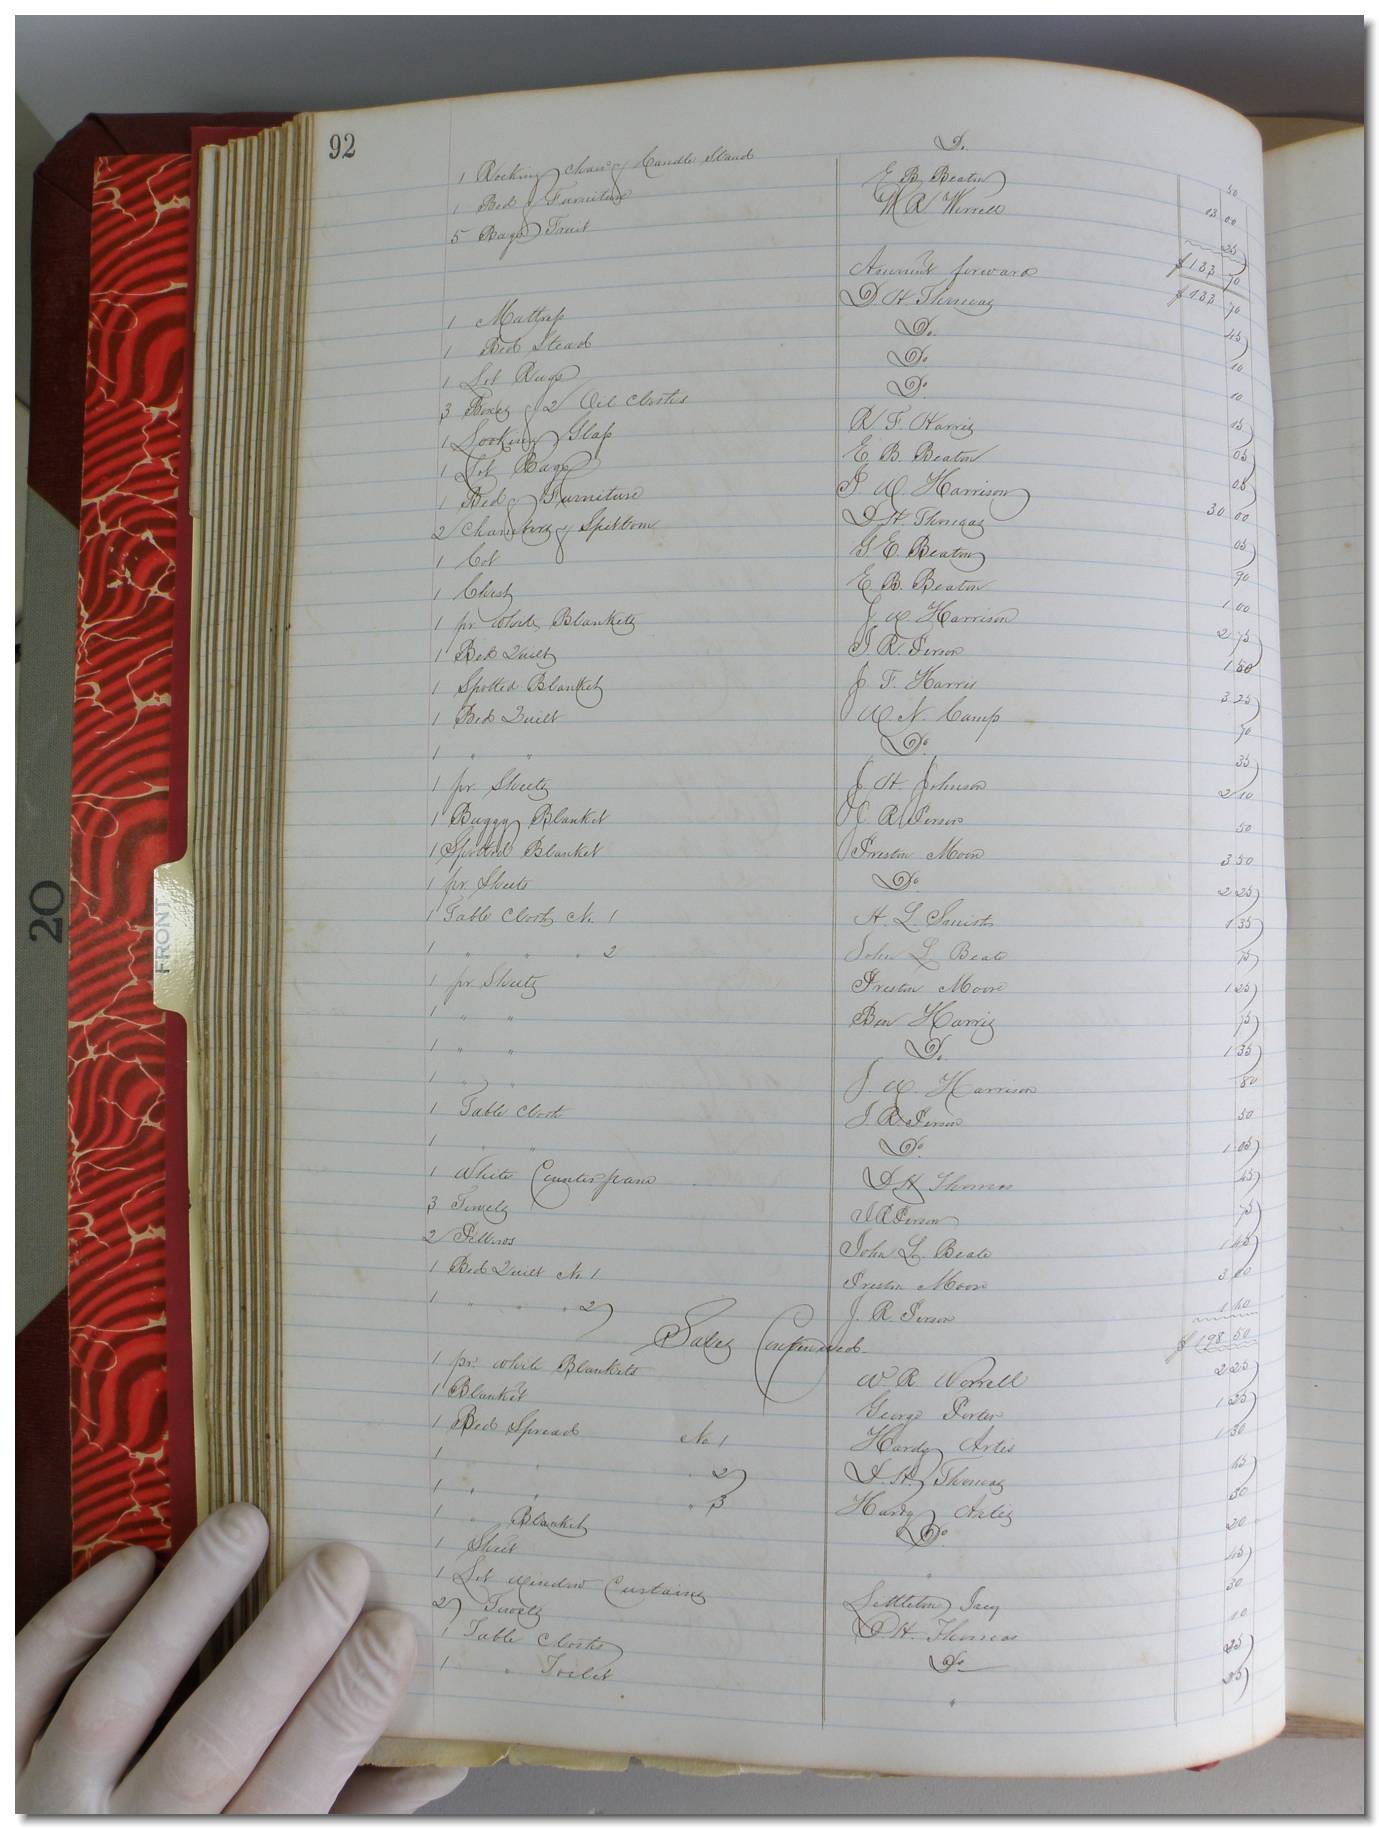 92
Do.
1 Rocking Chair & Candle Stand E B Beaton 50
1 Bed & Furniture W R Worrell 00
5 Bags Fruit 25
Amount forward $133 70
D. H. Thomas $133 70
1 Mattrass Do. 45
1 Bed Stead Do 10
1 Lot Rugs Do 10
3 Boxes & 2 Oil Cloths R. F. Harris 15
1 Looking Glass E B. Beaton 05
1 Lot Bags J W. Harrison 05
1 Bed & Furniture D. H. Thomas 30 00
2 Chambers & Spittoon G. E. Beaton 05
1 Cot E B. Beaton 90
1 Chest J W Harrison 1 00
1 pr White Blankets J R. Person 2 75
1 Bed Quilt J. F. Harris 1 50
1 Spotted Blanket W. N. Camp 3 25
1 Bed Quilt Do 70
1 " " 35
1 pr. Sheets J H Johnson 2 10
1 Buggy Blanket J. R. Person 50
1 Spotted Blanket Preston Moore 3 50
1 pr Sheets Do 2 25
1 Table Cloth No. 1 H. L. Smith 1 35
1 " " " 2 John L Beale 75
1 pr Sheets Preston Moore 1 25
1 " " Ben Harris 75
1 " " Do. 1 35
1 " " J. W. Harrison 80
1 Table Cloth J. R. Person 50
1 " " Do 1 05
1 White Counterpane D H Thomas 45
3 Towels J R Person 75
2 Pillows John L. Beale 1 45
1 Bed Quilt No 1 Preston Moore 3 00
1 " " " 2 J. R. Person 1 10
Sales Continued. $198 50
1 pr. White Blankets W. R. Worrell 2 25
1 Blanket George Porter 1 25
1 Bed Spread No. 1 Hardy Artis 1 30
1 " " " 2 D. H. Thomas 45
1 " " " 3 Hardy Artis 50
1 " Blanket Do. 20
1 Sheet " 45
1 Lot Window Curtains Littleton 30
2 Towels D. H. Thomas 10
1 Table Cloths Do 25
1 " Toilet " 25
20
FRONT